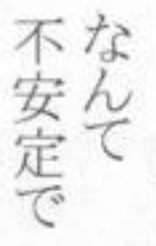 なんて
不安定で